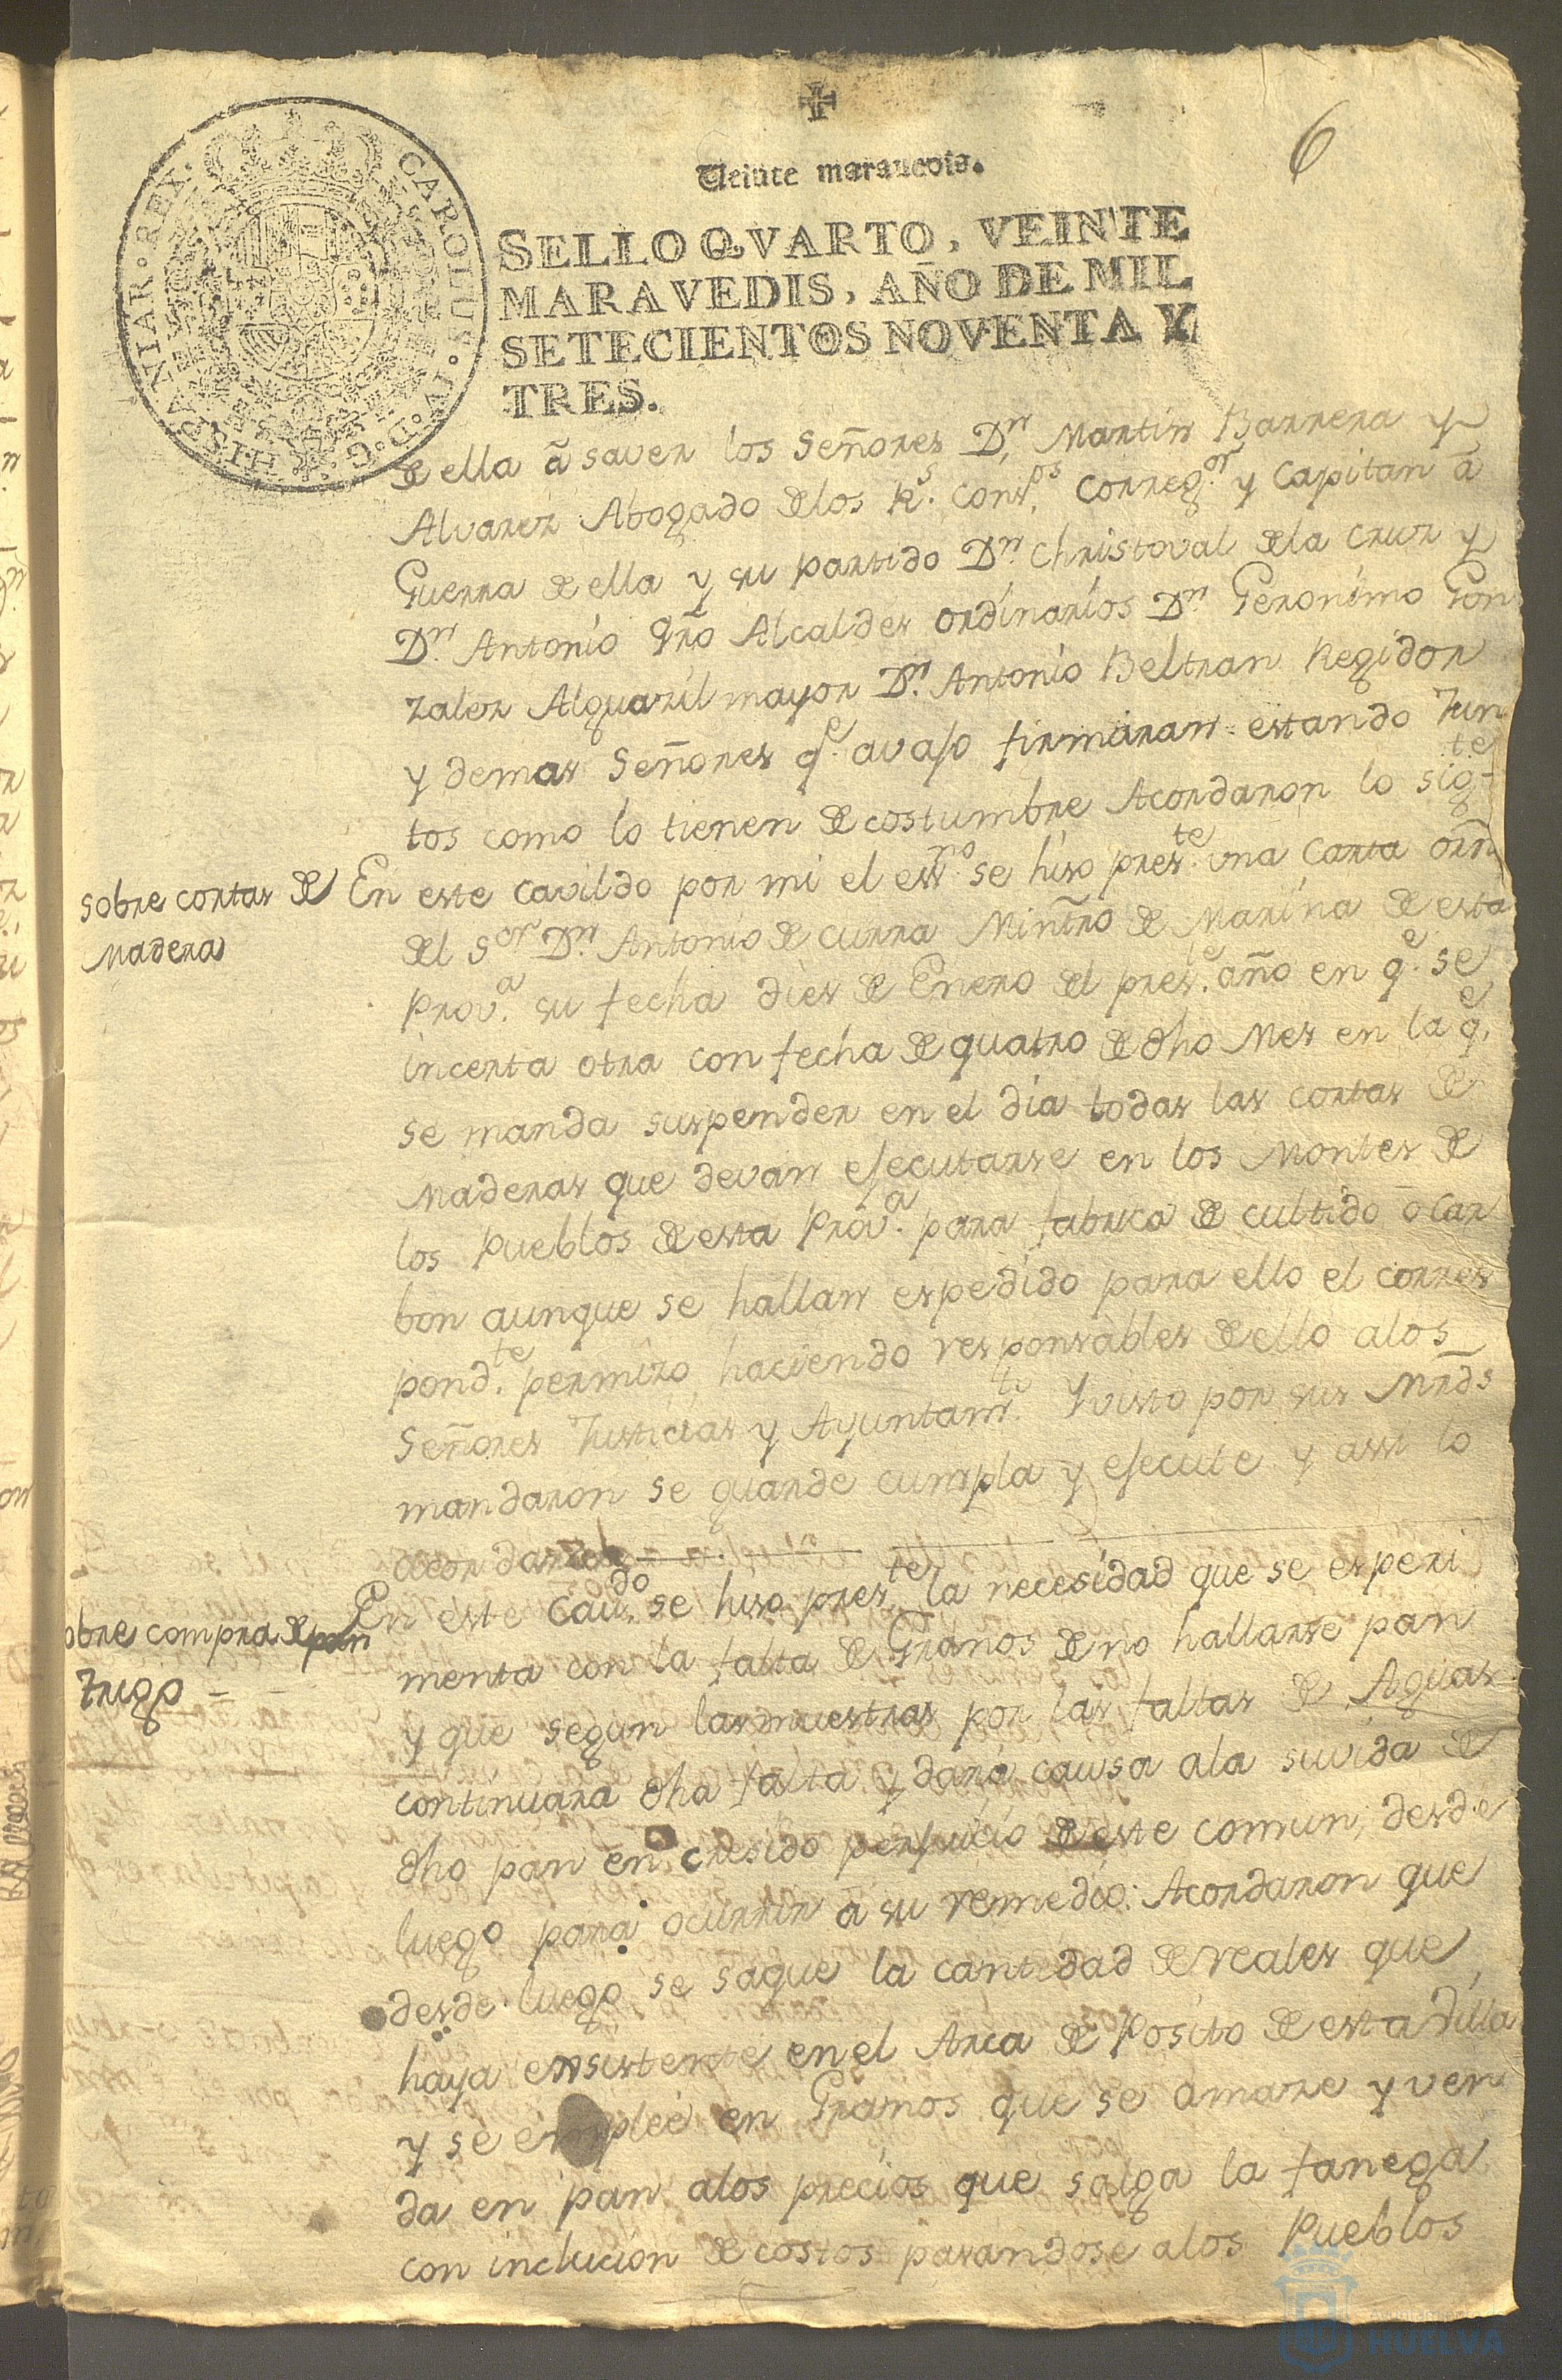 6
Veinte marauedis.
SELLO QVARTO, VEINTE
MARAVEDIS, AÑO DE MIL
SETECIENTOS NOVENTA Y
TRES.
CAROLUS. IV. D. G. HISPANIAR. REX.
de ella â saver los Señores Dn. Martin Barrera y
Alvarez Abogado delos Rs. Consos. Corregor. y Capitan â
Guerra de ella y su partido Dn. Christoval dela Cruz y
Dn. Antonio Qro Alcaldes ordinarios Dn. Geronimo Gon
zalez Alguazil mayor Dn. Antonio Beltran Regidor
y demas Señores qe. avajo firmaran estando Jun
tos como lo tienen de costumbre Acordaron lo sigte
Sobre cortas de
Madera
En este cavildo por mi el essno. se hiso preste. una Carta orn
del Sor Dn. Antonio de Curra Mintro de Marina de esta
Prova. su fecha dies de Enero del preste. año en qe. se
incerta otra con fecha de quatro de dho Mes en la qe.
se manda suspender en el dia todas las cortas de
Maderas que devan ejecutarse en los Montes de
los Pueblos de esta Prova. para fabrica de cultido ô Car
bon aunque se hallan espedido para ello el corres
pondte. permizo haciendo responsables de ello alos
Señores Justicias y Ayuntamto. Y visto por sus Mrds
mandaron se guarde cumpla y ejecute y assi lo
acordaron
obre compra de pan
Trigo
En este Caudo. se hiso preste. la necesidad que se esperi
menta con la falta de Granos de no hallarse pan
y que segun las muestras por las faltas de Aguas
continuara dha falta y dará causa ala suvida de
dho pan en cresido perjuicio de este comun, desde
luego para ocurrir â su remedio: Acordaron que
desde luego se saque la cantidad de reales que
haya ensistente en el Arca de Posito de esta Villa
y se emplee en Granos que se amaze y ven
da en pan alos precios que salga la fanega
con inclucion de costos pasandose alos Pueblos
HUELVA